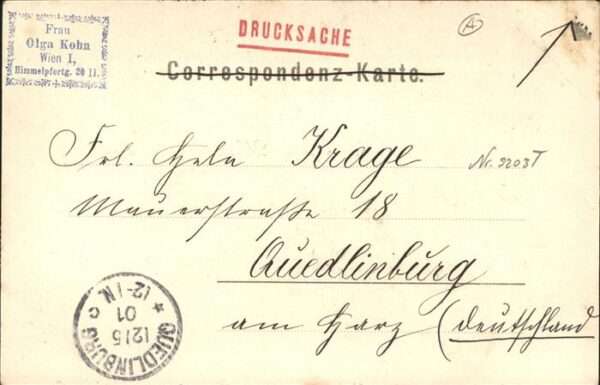 Frau
Olga Kohn
Wien I,
Himmelpfortg. 20 II.
DRUCKSACHE
Correspondenz-Karte.
Frl. Hela Krage
Nr. 3203T
Mauerstraße 18
Quedlinburg
am Harz (Deutschland
QUEDLINBURG
12/5
01
12-1N.
c